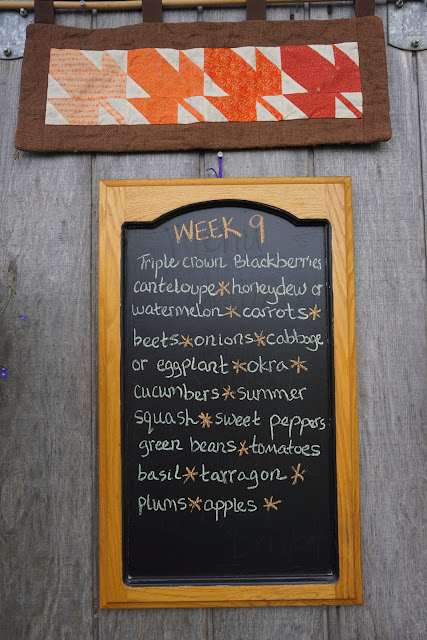 WEEK 9
Triple crown Blackberries
canteloupe*honeydew or
watermelon*carrots*
beets*onions*cabbage
or eggplant*okra*
cucumbers*summer
squash*sweet peppers
green beans*tomatoes
basil*tarragon*
plums*apples*